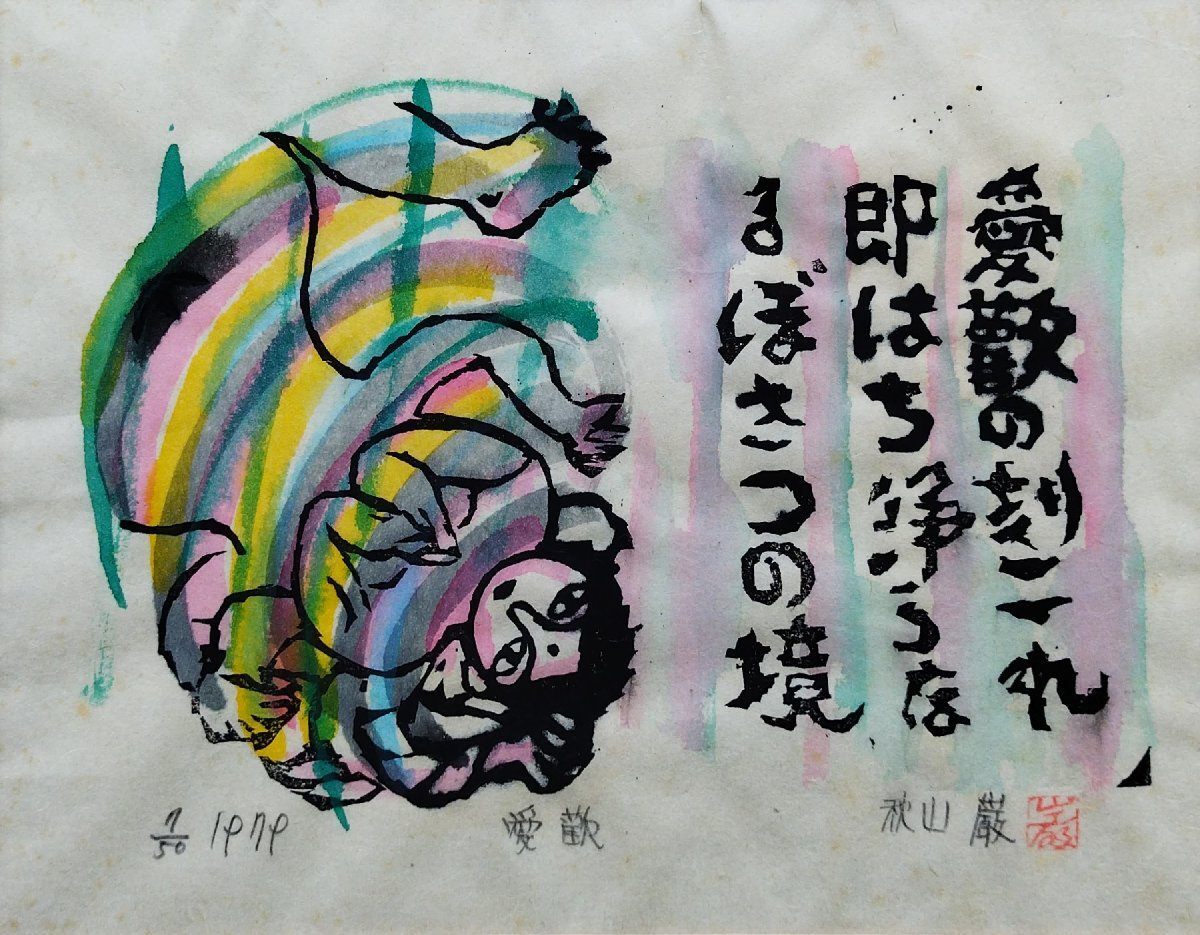 愛歡の刻これ
即はち浄らな
るぼさつの境
7/50 1979
愛歡
秋山巌
巌